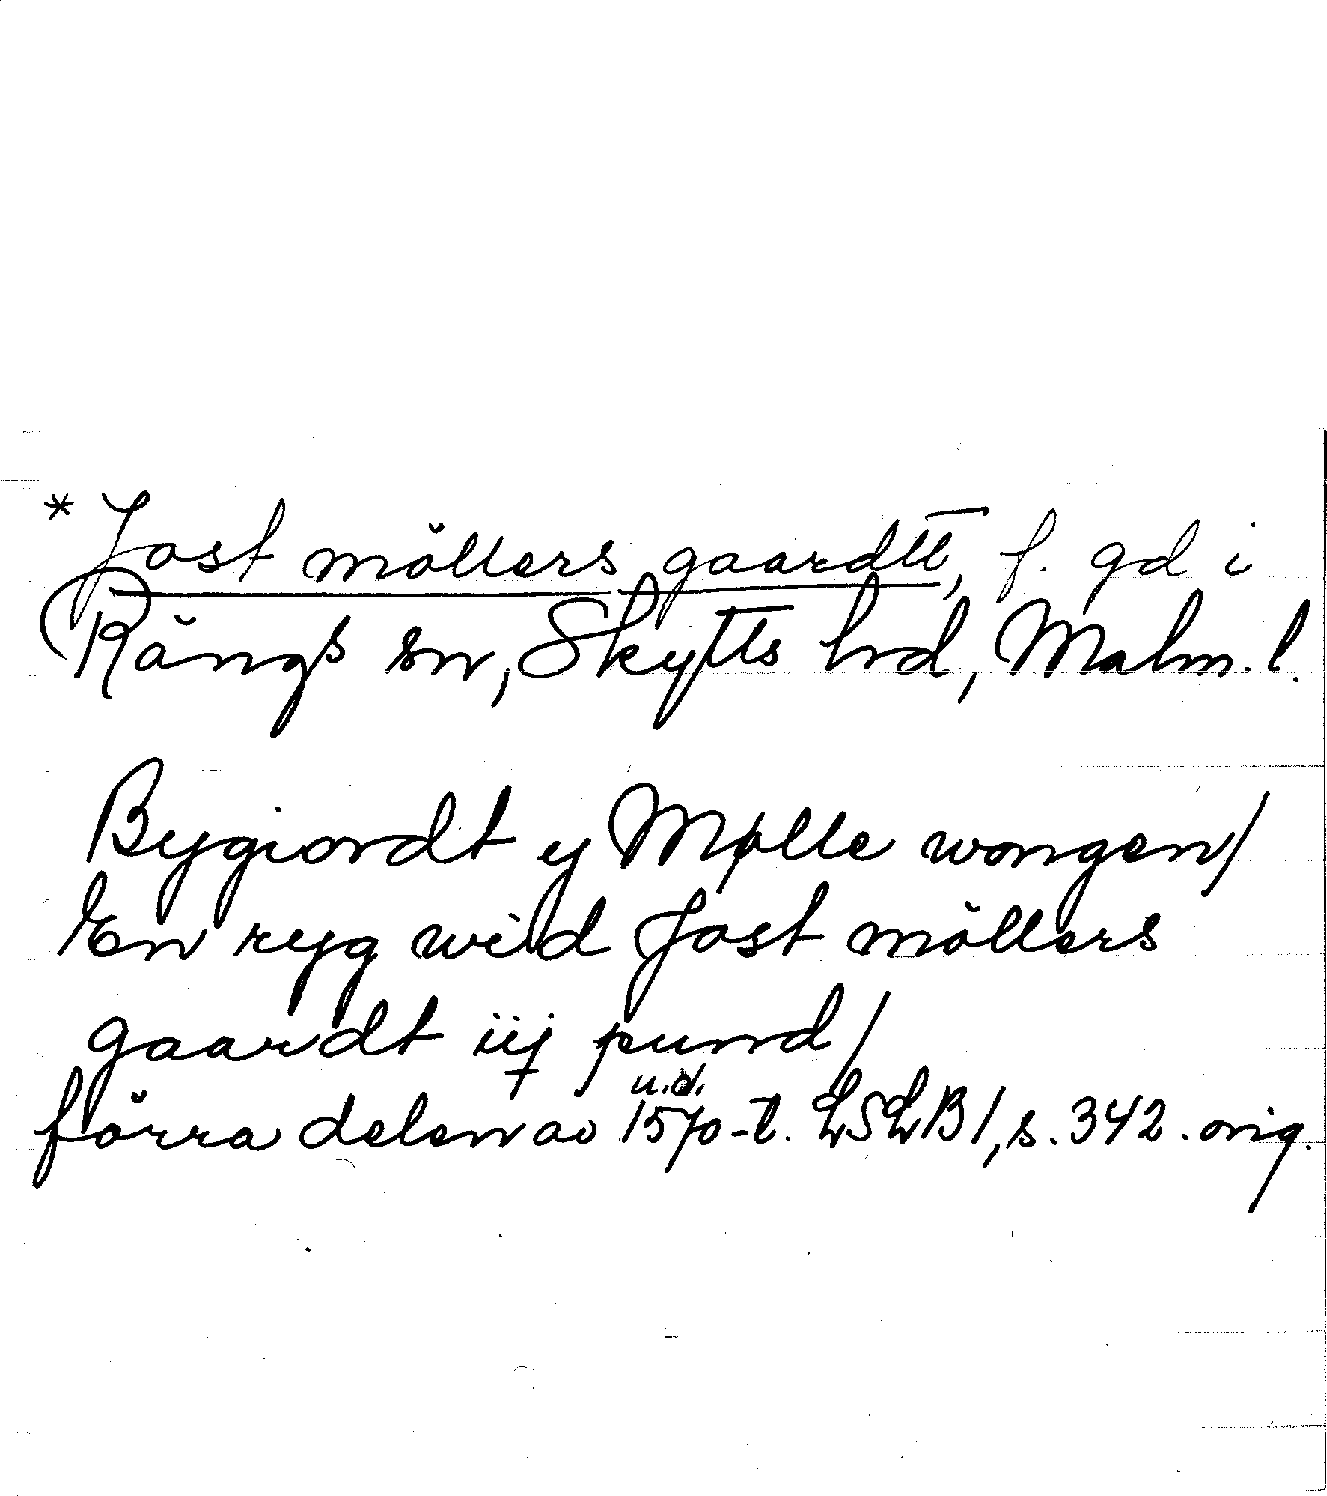 * Jost möllers gaardtt, f. gd i
Rängs sn, Skytts hrd, Malm. l.
Bygiordt y Mølle wongen/
En ryg wid Jost möllers
gaardt iij pund/
u.d.
förra delen av 1570-t. LSLB 1, s. 342. orig.